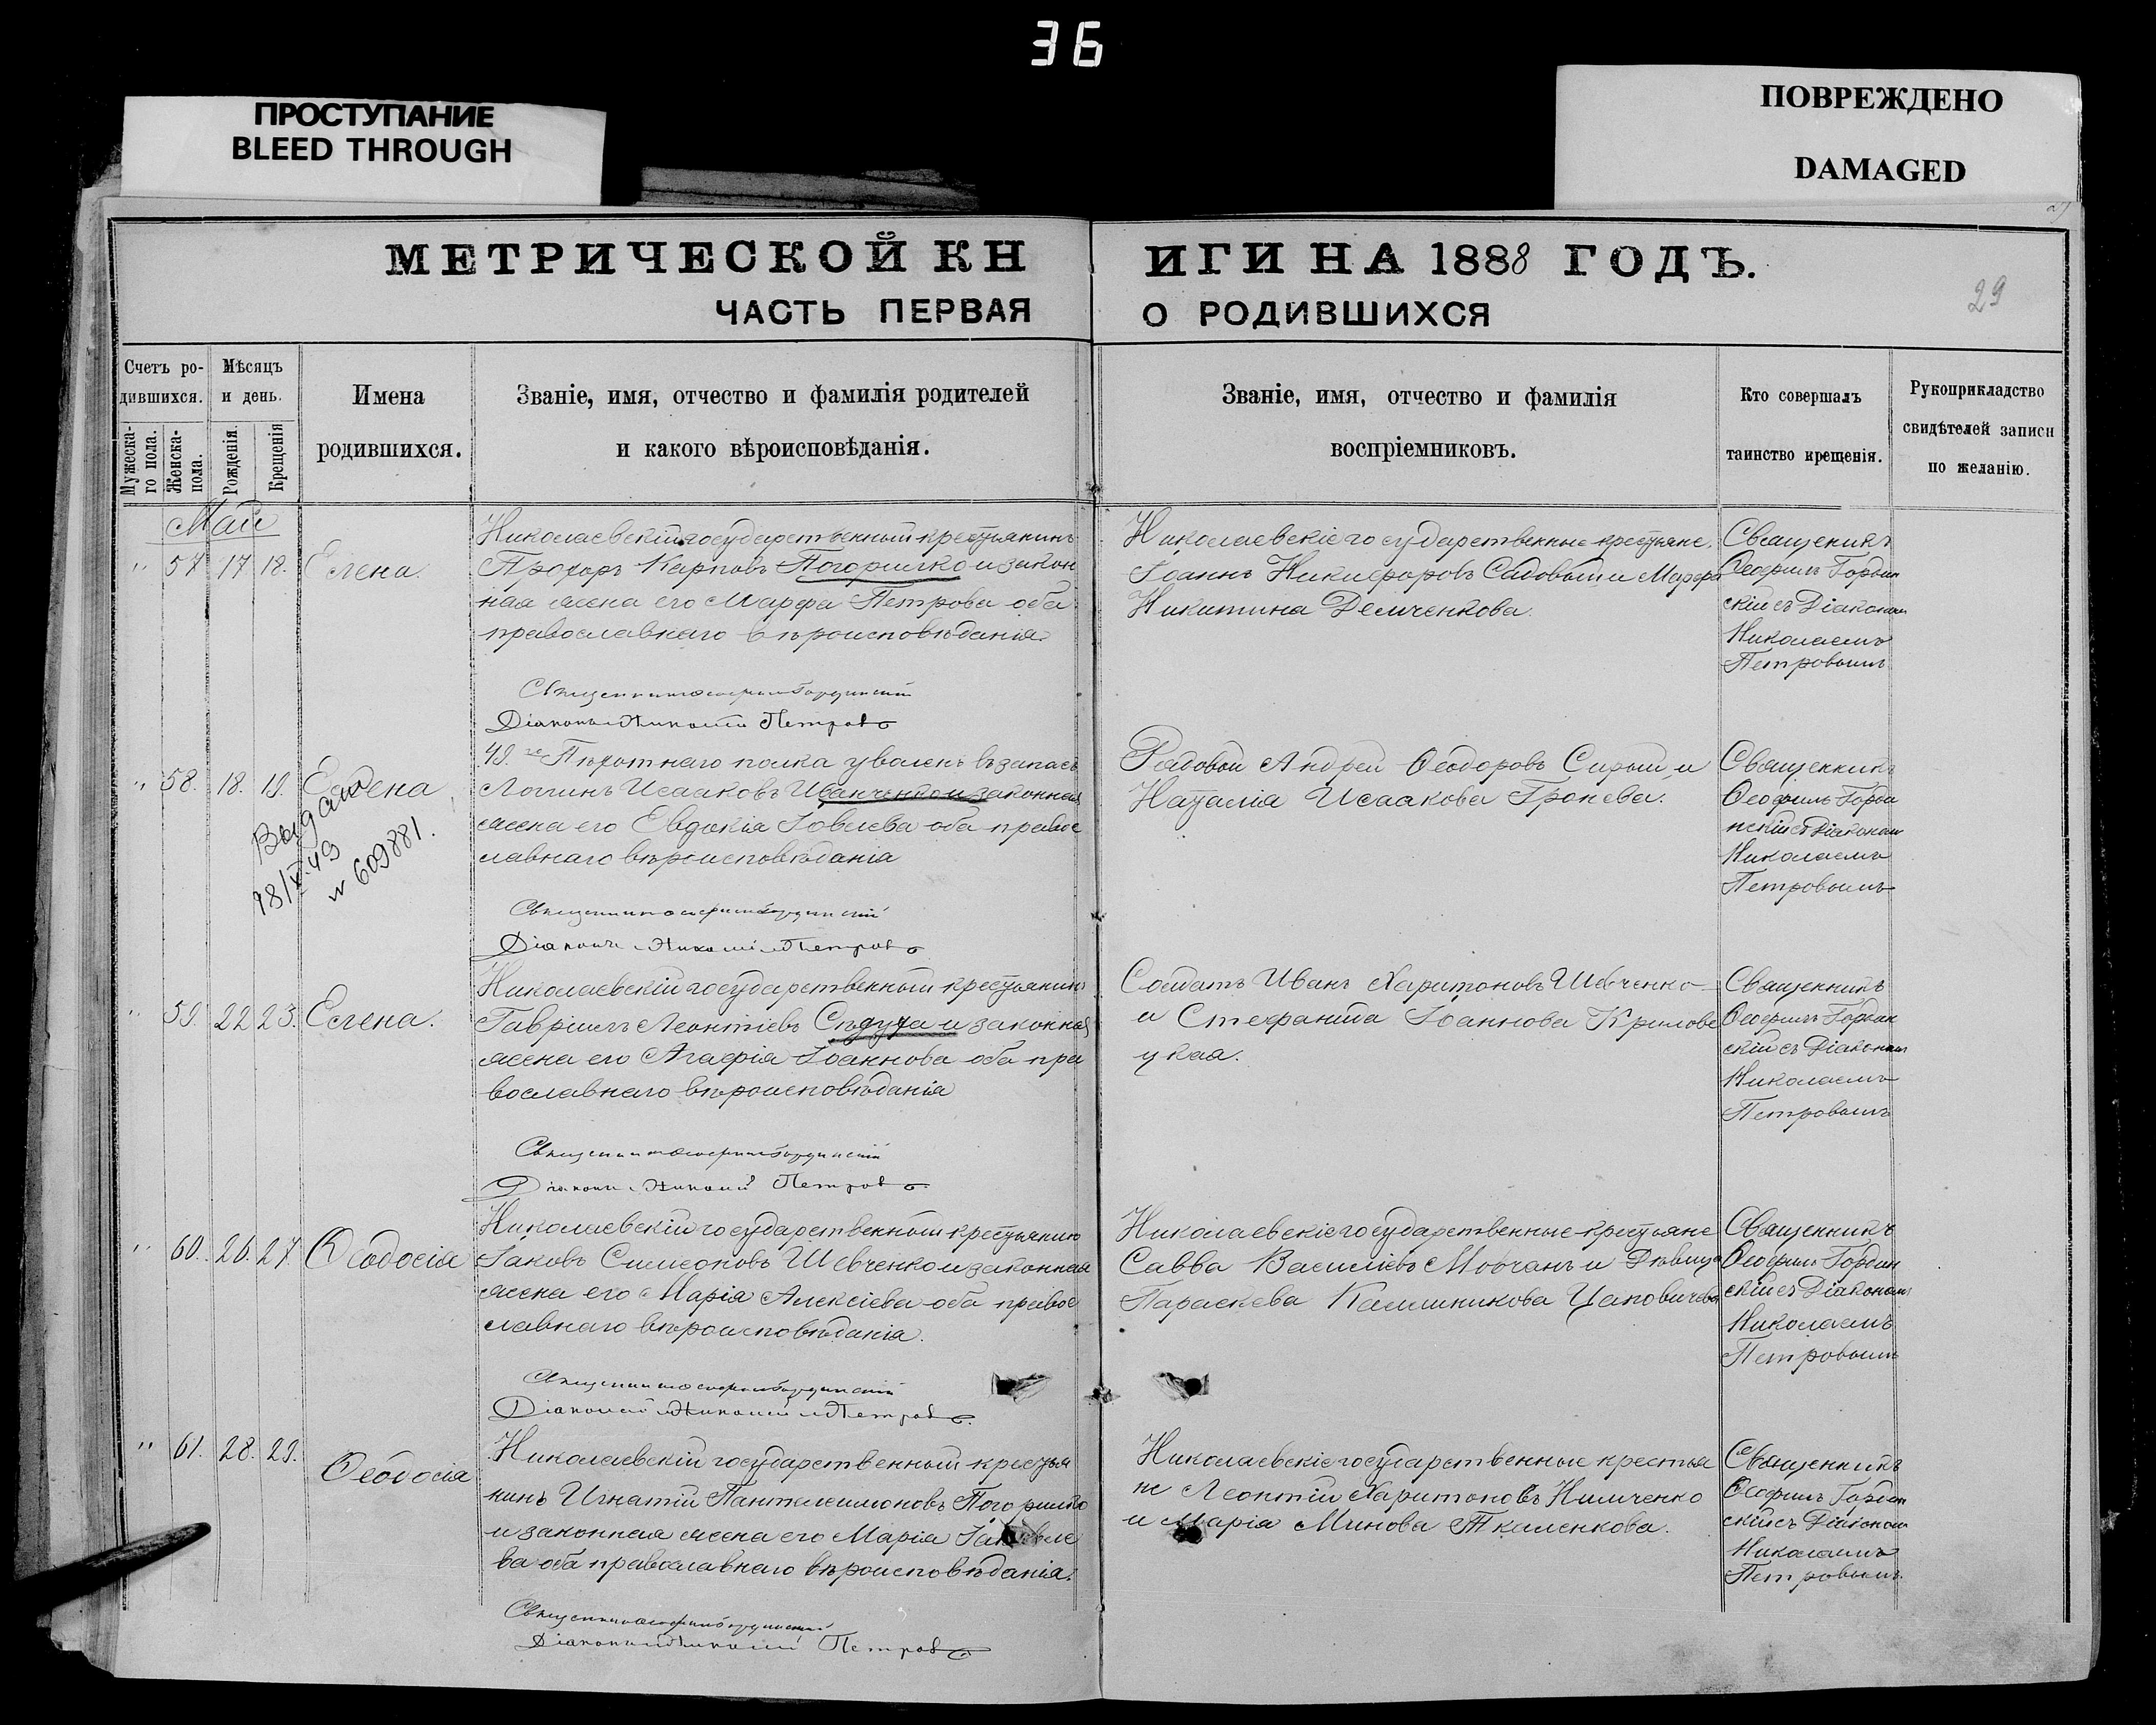 36
ПРОСТУПАНИЕ
BLEED THROUGH
ПОВРЕЖДЕНО
DAMAGED
МЕТРИЧЕСКОЙ КНИГИ НА 1888 ГОДЪ.
ЧАСТЬ ПЕРВАЯ О РОДИВШИХСЯ
29
Счетъ родившихся.
Мужеска-го пола.
Женска-пола.
Мѣсяцъ и день.
Рожденія.
Крещенія
Имена родившихся.
Званіе, имя, отчество и фамилія родителей
и какого вѣроисповѣданія.
Званіе, имя, отчество и фамилія
воспріемниковъ.
Кто совершалъ
таинство крещенія.
Рукоприкладство
свидѣтелей записи
по желанію.
Май
" 57 17 18. Елена.
Николаевскій государственный крестьянинъ
Прохоръ Карповъ Погорилко и закон
ная жена его Марфа Петрова оба
православнаго вѣроисповѣданія.
Николаевскіе государственные крестьяне,
Іоаннъ Никифоровъ Садовый и Марфа
Никитина Демченкова.
Священникъ
Ѳеофилъ
скій съ Діакономъ
Николаемъ
Петровымъ
Священникъ Ѳеофилъ
Діаконъ Николай Петровъ
" 58. 18. 19. Елена
Выдано
18/V.49
№ 609881.
49. го Пѣхотнаго полка уволенъ въ запасъ
Логинъ Исааковъ Иванченко и законная
жена его Евдокія Іовлева оба правос
лавнаго вѣроисповѣданія
Рядовой Андрей Ѳеодоровъ Сирый и
Наталія Исаакова Гронева.
Священникъ
Ѳеофилъ
нскій съ Діакономъ
Николаемъ
Петровымъ
Священникъ Ѳеофилъ
Діаконъ Николай Петровъ
" 59. 22 23. Елена.
Николаевскій государственный крестьянинъ
Гавріилъ Леонтіевъ и законная
жена его Агафія Іоаннова оба пра
вославнаго вѣроисповѣданія
Солдатъ Иванъ Харитоновъ Шевченко
и Стефанида Іоаннова Крилове
цкая.
Священникъ
Ѳеофилъ
скій съ Діакономъ
Николаемъ
Петровымъ
Священникъ Ѳеофилъ
Діаконъ Николай Петровъ
" 60. 26. 27. Ѳеодосія
Николаевскій государственный крестьянинъ
Іаковъ Симеоновъ Шевченко и законная
жена его Марія Алексіева оба правос
лавнаго вѣроисповѣданія.
Николаевскіе государственные крестьяне
Савва Василіевъ Мовчанъ и Дѣвица
Параскева Калинникова
Священникъ
Ѳеофилъ
скій съ Діакономъ
Николаемъ
Петровымъ
Священникъ Ѳеофилъ
Діаконъ Николай Петровъ
" 61. 28. 29. Ѳеодосія
Николаевскій государственный крестья
нинъ Игнатій Пантелеимоновъ Погорилко
и законная жена его Марія Іаковле
ва оба православнаго вѣроисповѣданія.
Николаевскіе государственные крестья
не Леонтій Харитоновъ Нимченко
и Марія Минова Ткаленкова.
Священникъ
Ѳеофилъ
скій съ Діакономъ
Николаемъ
Петровымъ.
Священникъ Ѳеофилъ
Діаконъ Николай Петровъ